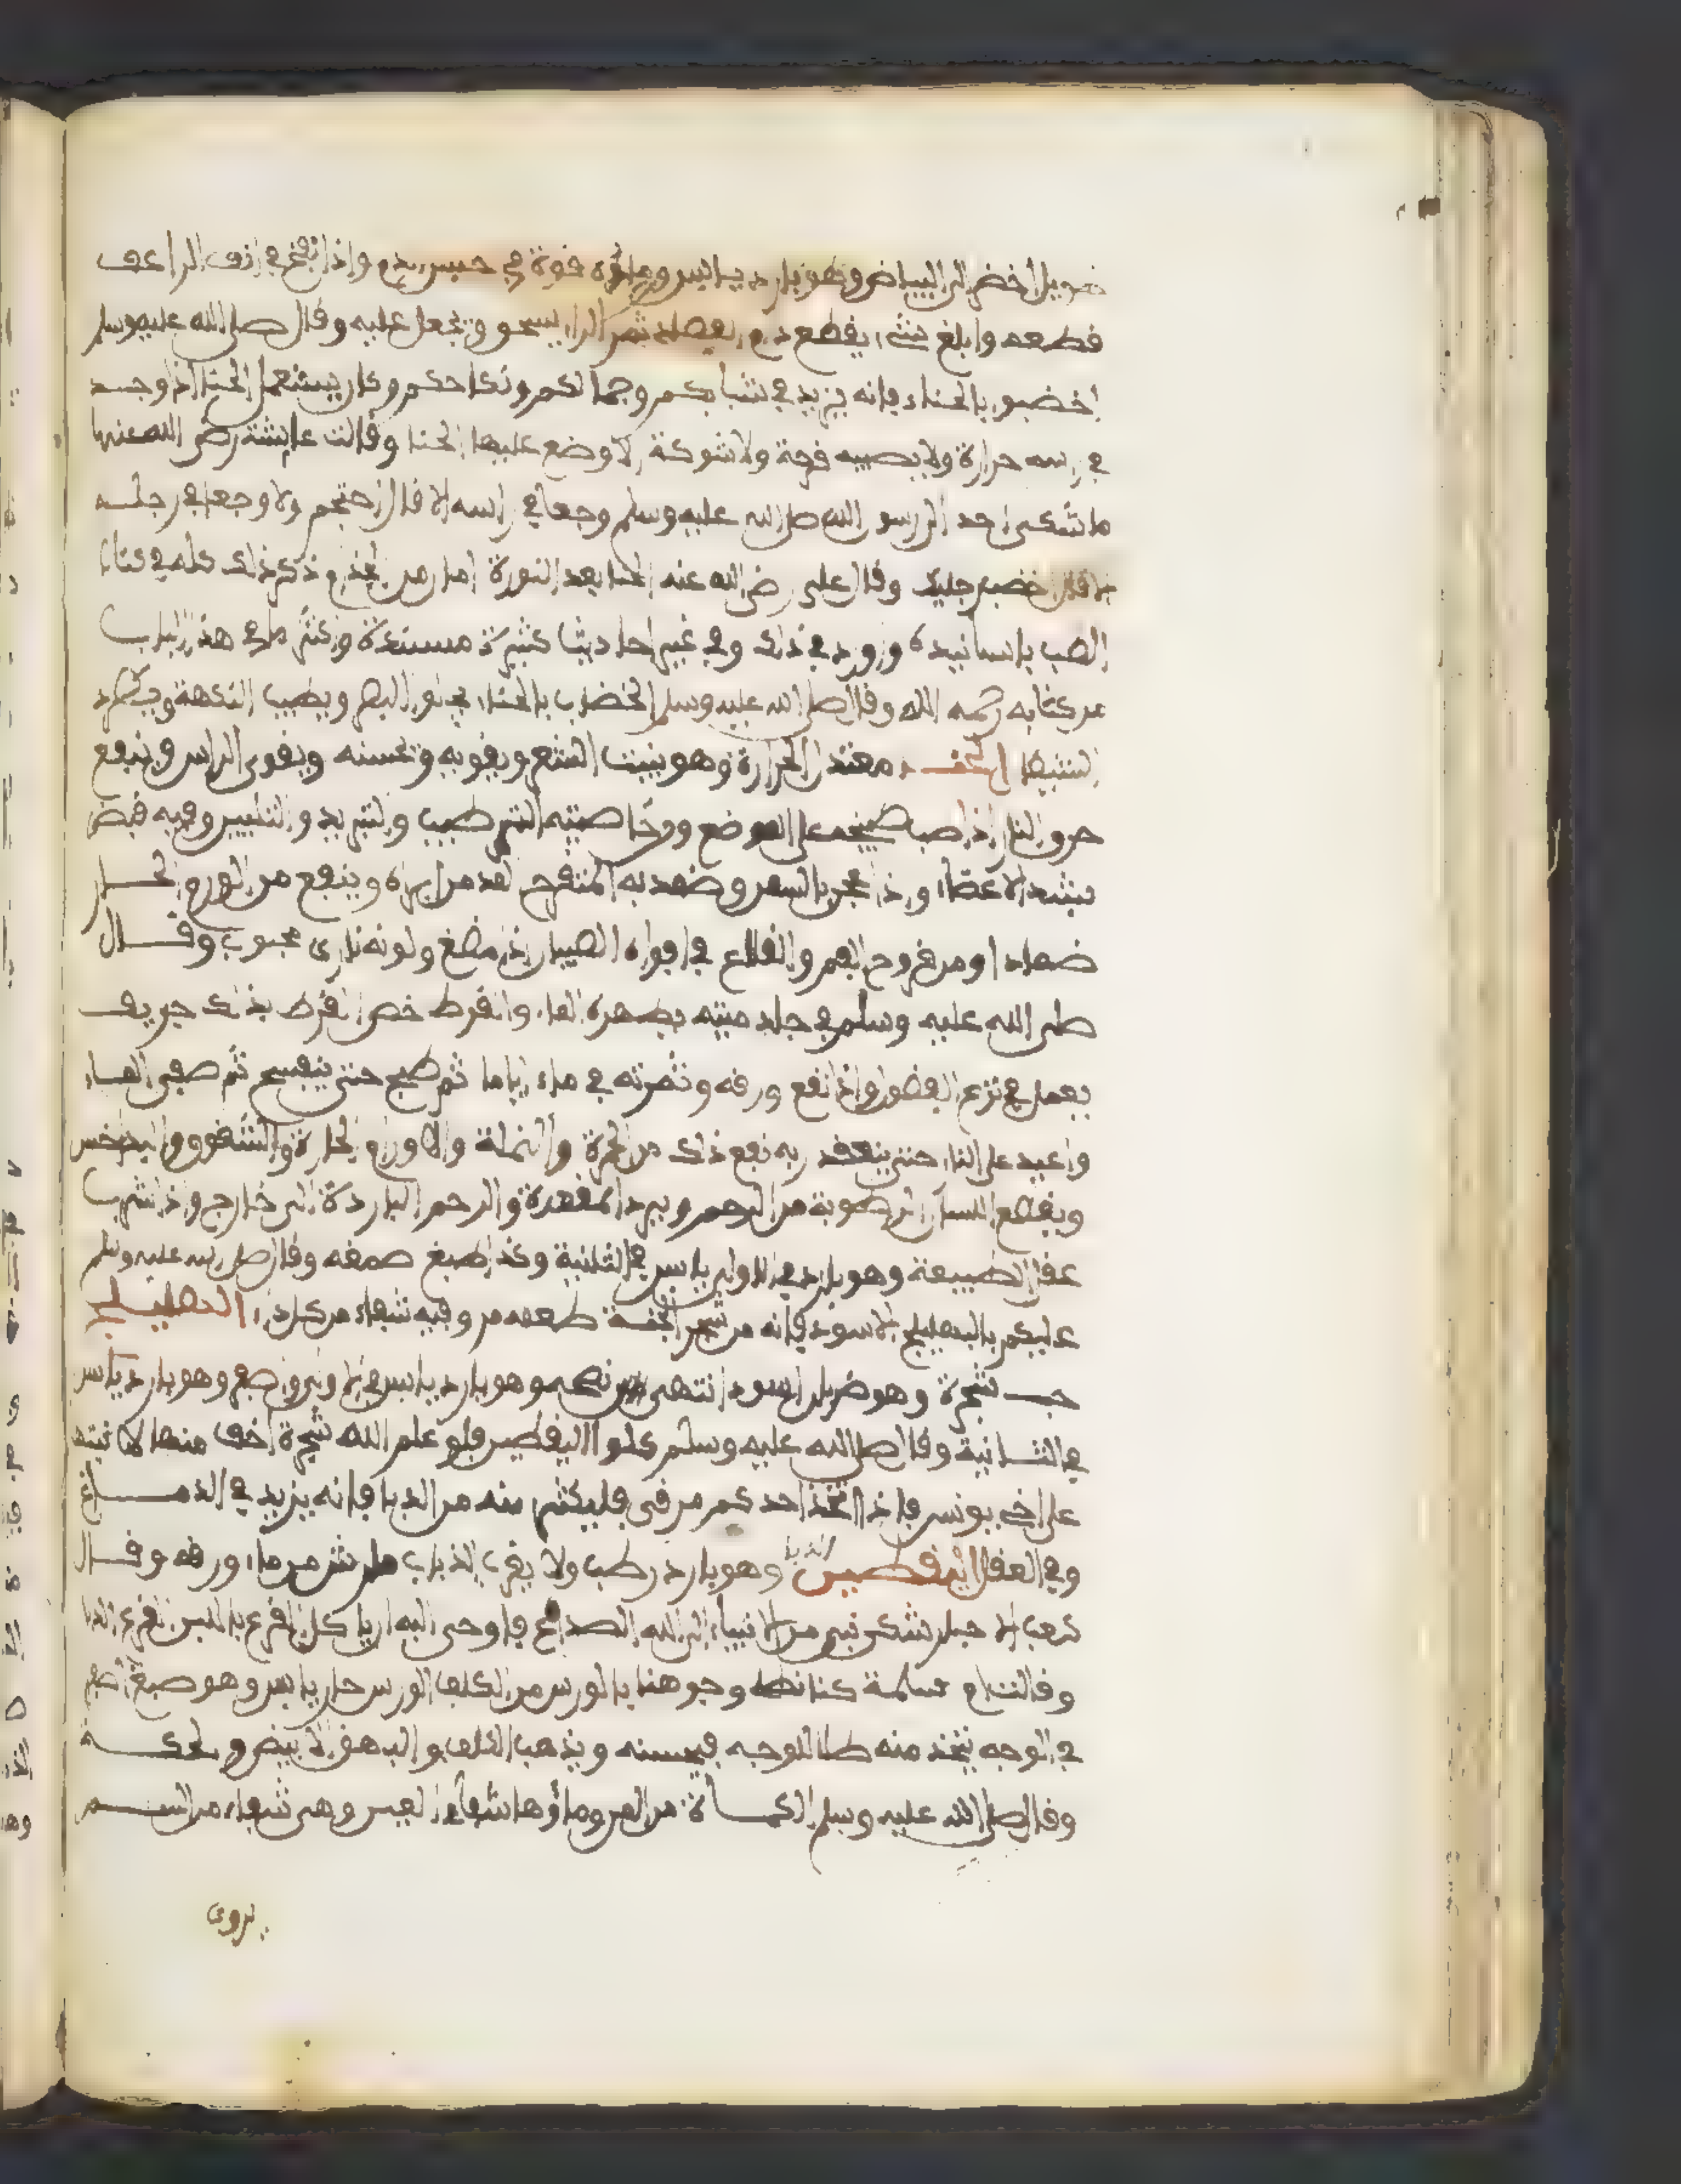 طويل أخضر الى البياض وهو بارد يابس وماؤه قوة في حبس الدم واذا نفخ في انف الراعف
قطعه وابلغ شيء يقطع دم ثمر يسحق ويجعل عليه وقال صلى الله عليه وسلم
اخضبوا بالحناء فانه يزيد في شبابكم وجمالكم ونكاحكم وكان يستعمل الحنا اذا وجد
في راسه حرارة ولا يصيبه قرحة ولا شوكة الا وضع عليها الحنا وقالت عائشة رضي الله عنها
ما شكى احد الى رسول الله صلى الله عليه وسلم وجعا في راسه الا قال احتجم ولا وجعا في رجليه
الا قال اخضب رجليك وقال علي رضي الله عنه الحنا بعد النورة امان من الجذام ذكر ذلك كله في كتاب
الطب باسانيده وورد في ذلك وفي غير احاديث كثيرة مسندة واكثر ما في هذا الباب
من كتابه رحمه الله وقال صلى الله عليه وسلم الخضاب بالحناء يجلو البصر ويطيب النكهة ويطرد
الشيطان معتدل الحرارة وهو ينبت الشعر ويقويه ويحسنه ويقوى الراس وينفع
حرق النار اذا صب طبيخه على الموضع وخاصيته الترطيب والتبريد والتليين وفيه قبض
يشد الاعضاء واذا عجن بالسمن وضمد به المتقرح وينفع من الورم الحار
ضمادا ومن قروح الفم والقلاع في افواه الصبيان اذا مضغ ولونه نارى محبوب وقال
صلى الله عليه وسلم في جلد ميتة يطهره الماء والقرظ خص القرظ بذلك
يعمل في نزع الفضول واذا نقع ورقه وثمرته في ماء اياما ثم طبخ حتى ينفسخ ثم صفى الماء
واعيد على النار حتى ينعقد ربه نفع ذلك من الحمرة والنملة والاورام الحارة والشقوق والداحس
ويقطع السيلان الرطوبة من الرحم ويرد المقعدة والرحم البارزة الى خارج واذا شرب
عقل الطبيعة وهو بارد في الاولى يابس في الثانية وكذا صمغه وقال صلى الله عليه وسلم
عليكم بالهليلج الاسود فانه من شجر الجنة طعمه مر وفيه شفاء من كل داء الهليلج
حب شجرة وهو ضربان اسود انتهى نضجه وهو بارد يابس في الاولى واصفر وهو بارد يابس
في الثانية وقال صلى الله عليه وسلم كلوا اليقطين فلو علم الله شجرة اخف منها لانبتها
على اخي يونس فاذا اتخذ احدكم مرقى فليكثر منه من الدبا فانه يزيد في الدماغ
وفي العقل اليقطين الدبا وهو بارد رطب ولا يقرب الذباب ما رش من ماء ورقه وقال
كعب الاحبار شكى نبي من الانبياء الى الله الصداع فاوحى اليه ان ياكل القرع باللبن القرع الدبا
وقالت ام سلمة كنا نطلي وجوهنا بالورس من الكلف الورس حار يابس وهو صبغ اصفر
في الوجه يتخذ منه طلا للوجه فيحسنه ويذهب الكلف والبهق الابيض والحكة
وقال صلى الله عليه وسلم الكمأة من المن وماؤها شفاء العين وهى شفاء من السم
يروى